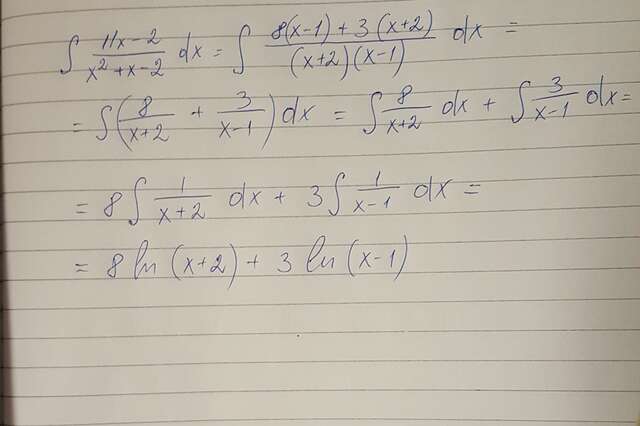 ∫ (11x-2)/(x²+x-2) dx = ∫ (8(x-1)+3(x+2))/((x+2)(x-1)) dx =
= ∫(8/(x+2) + 3/(x-1))dx = ∫ 8/(x+2) dx + ∫ 3/(x-1) dx =
= 8∫ 1/(x+2) dx + 3∫ 1/(x-1) dx =
= 8 ln (x+2) + 3 ln (x-1)